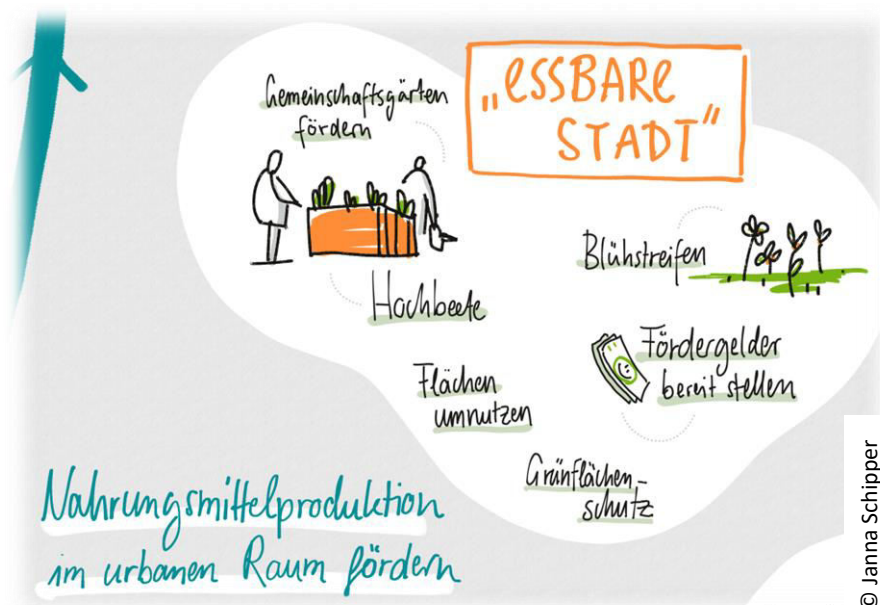 „ESSBARE
STADT"
Gemeinschaftsgärten
fördern
Hochbeete
Blühstreifen
Flächen
umnutzen
Fördergelder
bereit stellen
Grünflächen-
schutz
Nahrungsmittelproduktion
im urbanen Raum fördern
© Janna Schipper